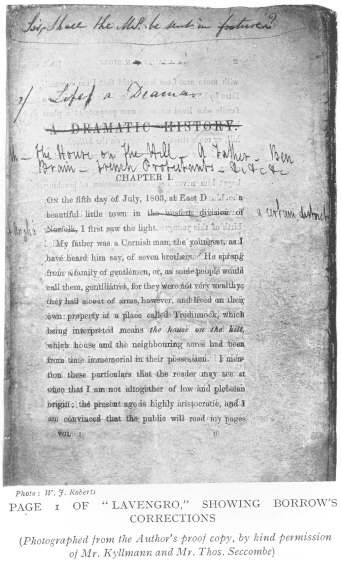 Sir, Shall the MS. be sent in future?
Life, a Drama.
A DRAMATIC HISTORY.
the House on the Hill – A Father – Ben
Brain – French Protestants – &c &c
CHAPTER I.
On the fifth day of July, 1803, at East D
beautiful little town in the western division of
a certain district
Norfolk, I first saw the light.
My father was a Cornish man, the youngest, as I
have heard him say, of seven brothers. He sprang
from a family of gentlemen, or, as some people would
call them, gentillatres, for they were not very wealthy;
they had a coat of arms, however, and lived on their
own property at a place called Tredinnock, which
being interpreted means the house on the hill,
which house and the neighbouring acres had been
from time immemorial in their possession. I men-
tion these particulars that the reader may see at
once that I am not altogether of low and plebeian
origin; the present age is highly aristocratic, and I
am convinced that the public will read my pages
VOL. I
Photo: W. J. Roberts
PAGE 1 OF "LAVENGRO," SHOWING BORROW'S
CORRECTIONS
(Photographed from the Author's proof copy, by kind permission
of Mr. Kyllmann and Mr. Thos. Seccombe)